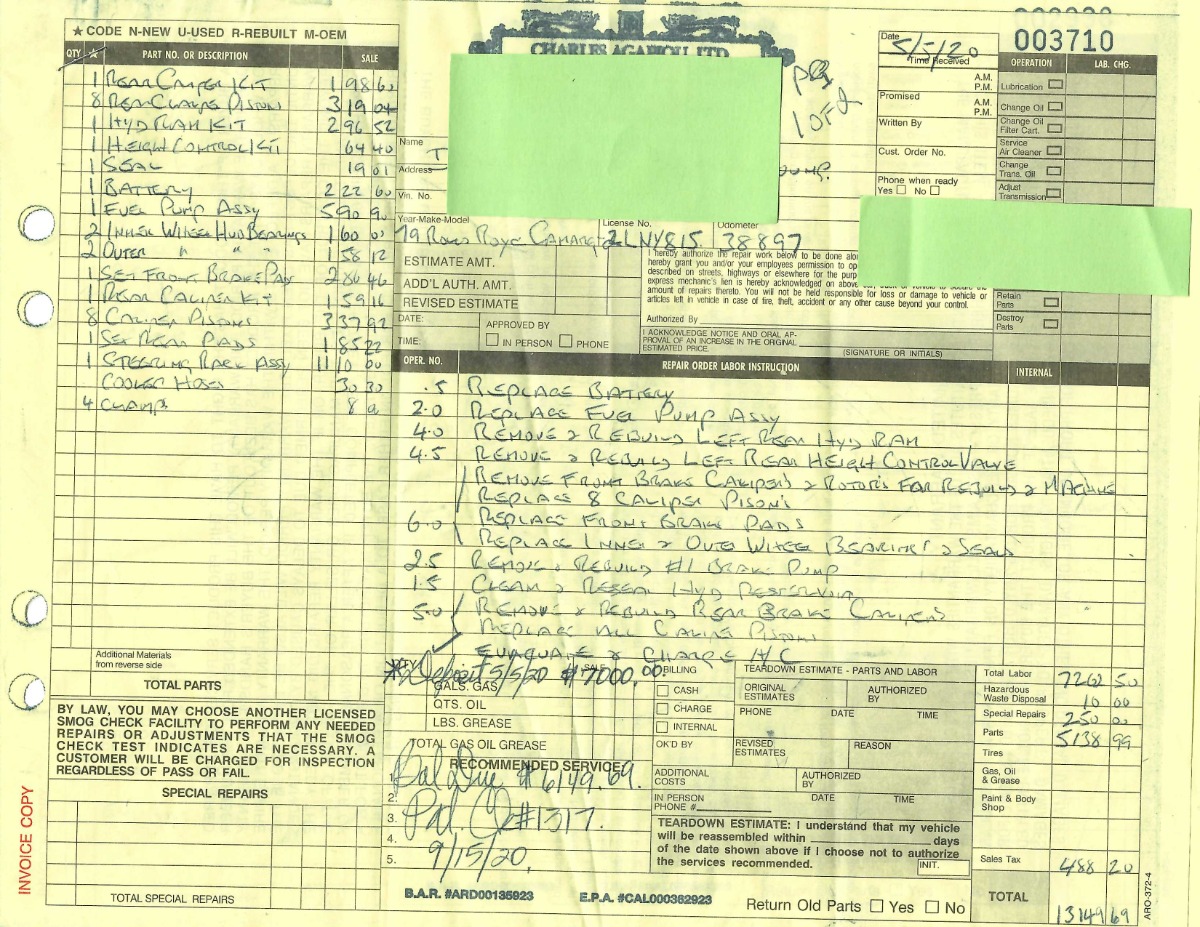 ★ CODE N-NEW U-USED R-REBUILT M-OEM
QTY ★ PART NO. OR DESCRIPTION SALE
1 REAR CALIPER KIT 198 60
8 REAR CALIPER PISTONS 319 04
1 HYD RAM KIT 296 52
1 HEIGHT CONTROL KIT 64 40
1 SEAL 19 01
1 BATTERY 222 60
1 FUEL PUMP ASSY 590 90
2 INNER WHEEL HUB BEARINGS 160 00
2 OUTER " " 158 12
1 SET FRONT BRAKE PAD 286 46
1 REAR CALIPER KIT 159 16
8 CALIPER PISONS 337 92
1 SET REAR PADS 185 22
1 STEERING RACK ASSY 1110 00
COOLER HOSES 30 30
4 CLAMPS 8
Additional Materials
from reverse side
TOTAL PARTS
BY LAW, YOU MAY CHOOSE ANOTHER LICENSED
SMOG CHECK FACILITY TO PERFORM ANY NEEDED
REPAIRS OR ADJUSTMENTS THAT THE SMOG
CHECK TEST INDICATES ARE NECESSARY. A
CUSTOMER WILL BE CHARGED FOR INSPECTION
REGARDLESS OF PASS OR FAIL.
SPECIAL REPAIRS
TOTAL SPECIAL REPAIRS
INVOICE COPY
CHARLES AGAPIOU LTD
PG
1 OF 2
Name T
Address
Vin. No.
Year-Make-Model License No. Odometer
79 ROLLS ROYCE CAMARGUE 2LNY815 38897
ESTIMATE AMT.
ADD'L AUTH. AMT.
REVISED ESTIMATE
DATE:
TIME:
APPROVED BY
IN PERSON PHONE
I hereby authorize the repair work below to be done alo
hereby grant you and/or your employees permission to op
described on streets, highways or elsewhere for the purp
express mechanic's lien is hereby acknowledged on above
amount of repairs thereto. You will not be held responsible for loss or damage to vehicle or
articles left in vehicle in case of fire, theft, accident or any other cause beyond your control.
Authorized By
I ACKNOWLEDGE NOTICE AND ORAL AP-
PROVAL OF AN INCREASE IN THE ORIGINAL
ESTIMATED PRICE.
(SIGNATURE OR INITIALS)
Date 5/5/20
Time Received
A.M.
P.M.
Promised
A.M.
P.M.
Written By
Cust. Order No.
Phone when ready
Yes No
003710
OPERATION LAB. CHG.
Lubrication
Change Oil
Change Oil
Filter Cart.
Service
Air Cleaner
Change
Trans. Oil
Adjust
Transmission
Retain
Parts
Destroy
Parts
OPER. NO. REPAIR ORDER LABOR INSTRUCTION INTERNAL
.5 REPLACE BATTERY
2.0 REPLACE FUEL PUMP ASSY
4.0 REMOVE & REBUILD LEFT REAR HYD RAM
4.5 REMOVE & REBUILD LEFT REAR HEIGHT CONTROL VALVE
REMOVE FRONT BRAKE CALIPERS & ROTORS FOR REBUILD & MACHINE
REPLACE 8 CALIPER PISONS
6.0 REPLACE FRONT BRAKE PADS
REPLACE INNER & OUTER WHEEL BEARINGS & SEALS
2.5 REMOVE & REBUILD #1 BRAKE PUMP
1.5 CLEAN & RESEAL HYD RESERVOIR
5.0 REMOVE & REBUILD REAR BRAKE CALIPERS
REPLACE ALL CALIPER PISTONS
EVACUATE & CHARGE A/C
QTY SALE
* Deposit 5/5/20 $7000.00
GALS. GAS
QTS. OIL
LBS. GREASE
TOTAL GAS OIL GREASE
RECOMMENDED SERVICE
1. Bal Due $6149.69.
2.
3. Pd. Ck#1317.
4.
5. 9/15/20,
BILLING
CASH
CHARGE
INTERNAL
TEARDOWN ESTIMATE - PARTS AND LABOR
ORIGINAL
ESTIMATES
AUTHORIZED
BY
PHONE DATE TIME
OK'D BY REVISED
ESTIMATES REASON
ADDITIONAL
COSTS
AUTHORIZED
BY
IN PERSON
PHONE # DATE TIME
TEARDOWN ESTIMATE: I understand that my vehicle
will be reassembled within days
of the date shown above if I choose not to authorize
the services recommended. INIT.
B.A.R. #ARD00135923 E.P.A. #CAL000362923
Return Old Parts Yes No
Total Labor 7262 50
Hazardous
Waste Disposal 10 00
Special Repairs 250 00
Parts 5138 99
Tires
Gas, Oil
& Grease
Paint & Body
Shop
Sales Tax 488 20
TOTAL 13149 69
ARO-372-4